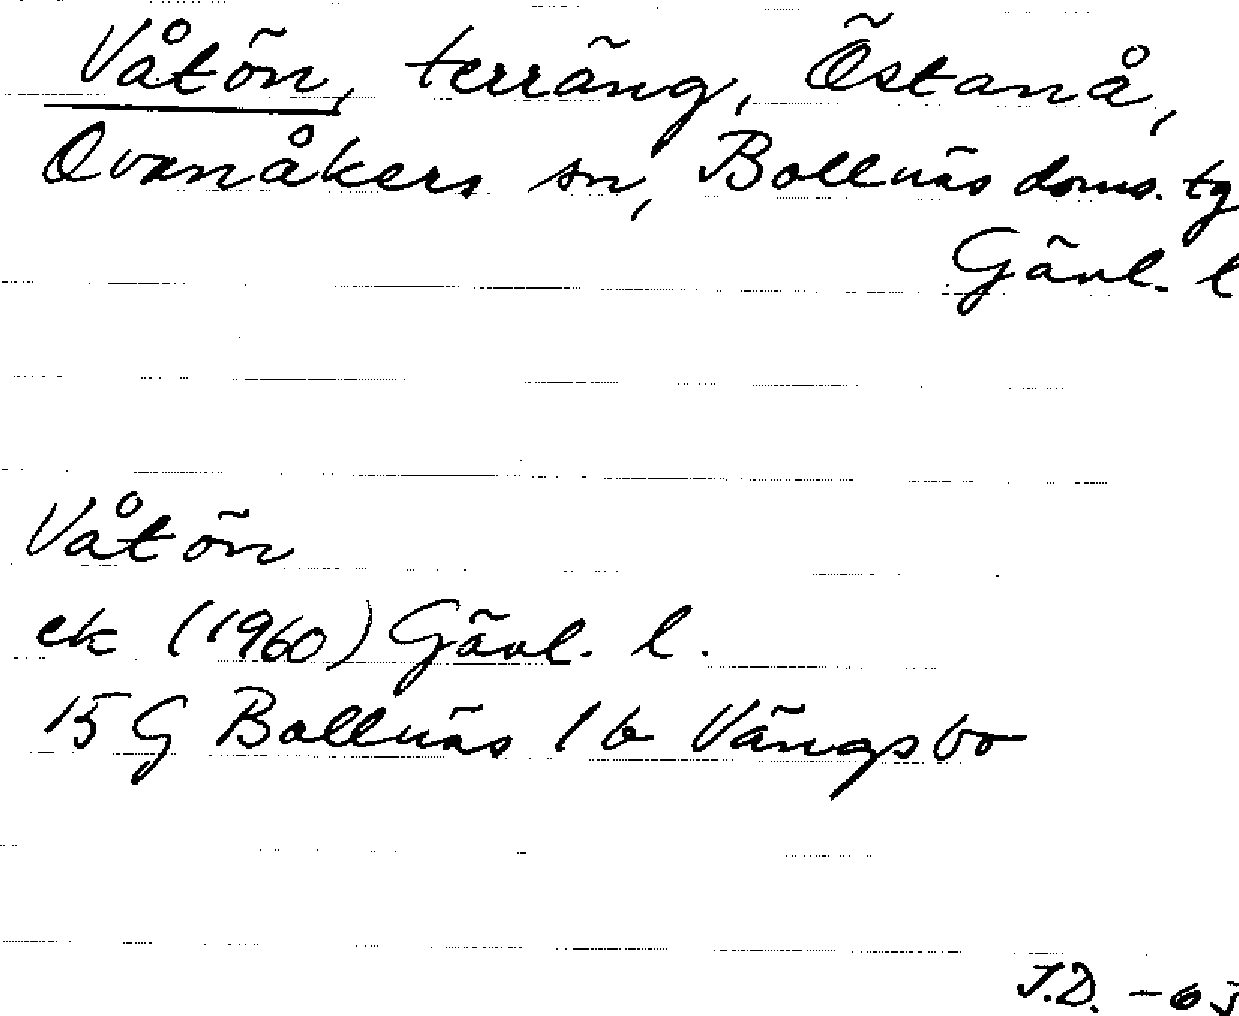 Våtön, terräng, Östanå,
Ovanåkers sn, Bollnäs doms. tg
Gävl. l
Våtön
ek (1960) Gävl. l.
15 G Bollnäs 1 b Vängsbo
J.D. -63